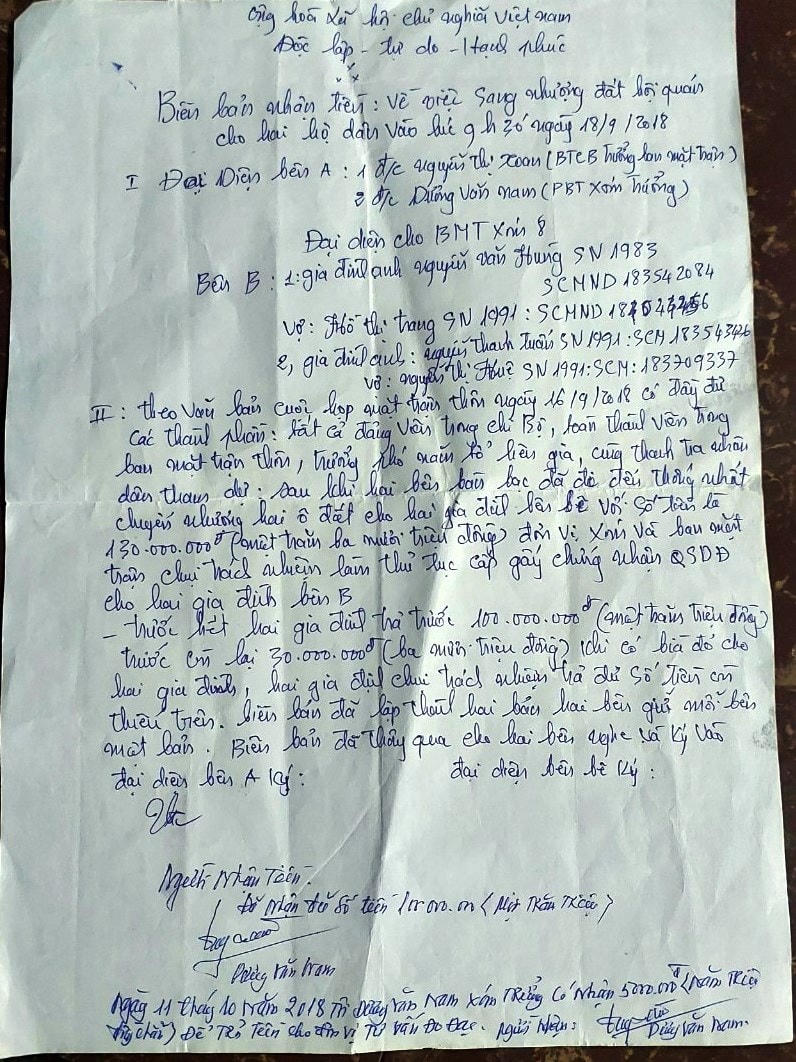 Cộng hoà xã hội chủ nghĩa Việt nam
Độc lập - tự do - Hạnh phúc
Biên bản nhận tiền: Về việc sang nhượng đất hội quán
cho hai hộ dân vào lúc 9h30 ngày 18/9/2018
I Đại Diện bên A: 1 đ/c nguyễn thị xoan (BTCB trưởng ban mặt trận)
2 đ/c Dương văn nam (PBT xóm trưởng)
Đại diện cho BMT xóm 8
Bên B: 1: gia đình anh nguyễn văn Hùng SN 1983
SCMND 183542084
Vợ: Hồ thị trang SN 1991: SCMND
2, gia đình anh: nguyễn thanh tuấn SN 1991: SCM 183543426
vợ: nguyễn thị Huệ SN 1991: SCM: 183709337
II: theo văn bản cuộc họp mặt trận thôn ngày 16/9/2018 có đầy đủ
các thành phần: tất cả đảng viên trong chi Bộ, toàn thành viên trong
ban mặt trận thôn, trưởng phó năm tổ liên gia, cùng thanh tra nhân
dân tham dự: sau khi hai bên bàn bạc đã đi đến thống nhất
chuyển nhượng hai ô đất cho hai gia đình bên bê với số tiền là
130.000.000đ (một trăm ba mươi triệu đồng) đơn vị xóm và ban mặt
trận chịu trách nhiệm làm thủ tục cấp giấy chứng nhận QSDĐ
cho hai gia đình bên B
- trước hết hai gia đình trả trước 100.000.000đ (một trăm triệu đồng)
trước còn lại 30.000.000đ (ba mươi triệu đồng) khi có bìa đỏ cho
hai gia đình, hai gia đình chịu trách nhiệm trả đủ số tiền còn
thiếu trên. biên bản đã lập thành hai bản hai bên giữ mỗi bên
một bản. Biên bản đã thông qua cho hai bên nghe và ký vào
đại diện bên A ký: đại diện bên bê ký:
Người Nhận Tiền.
Đã Nhận đủ số tiền 100.000.000 (Một Trăm Triệu)
Dương Văn Nam
Ngày 11 tháng 10 Năm 2018 Tôi Dương Văn Nam Xóm Trưởng Có Nhận 5000.000đ (Năm Triệu
chẵn) Để Trả Tiền cho đơn vị Tư vấn Đo Đạc. Người Nhận: Dương Văn Nam.